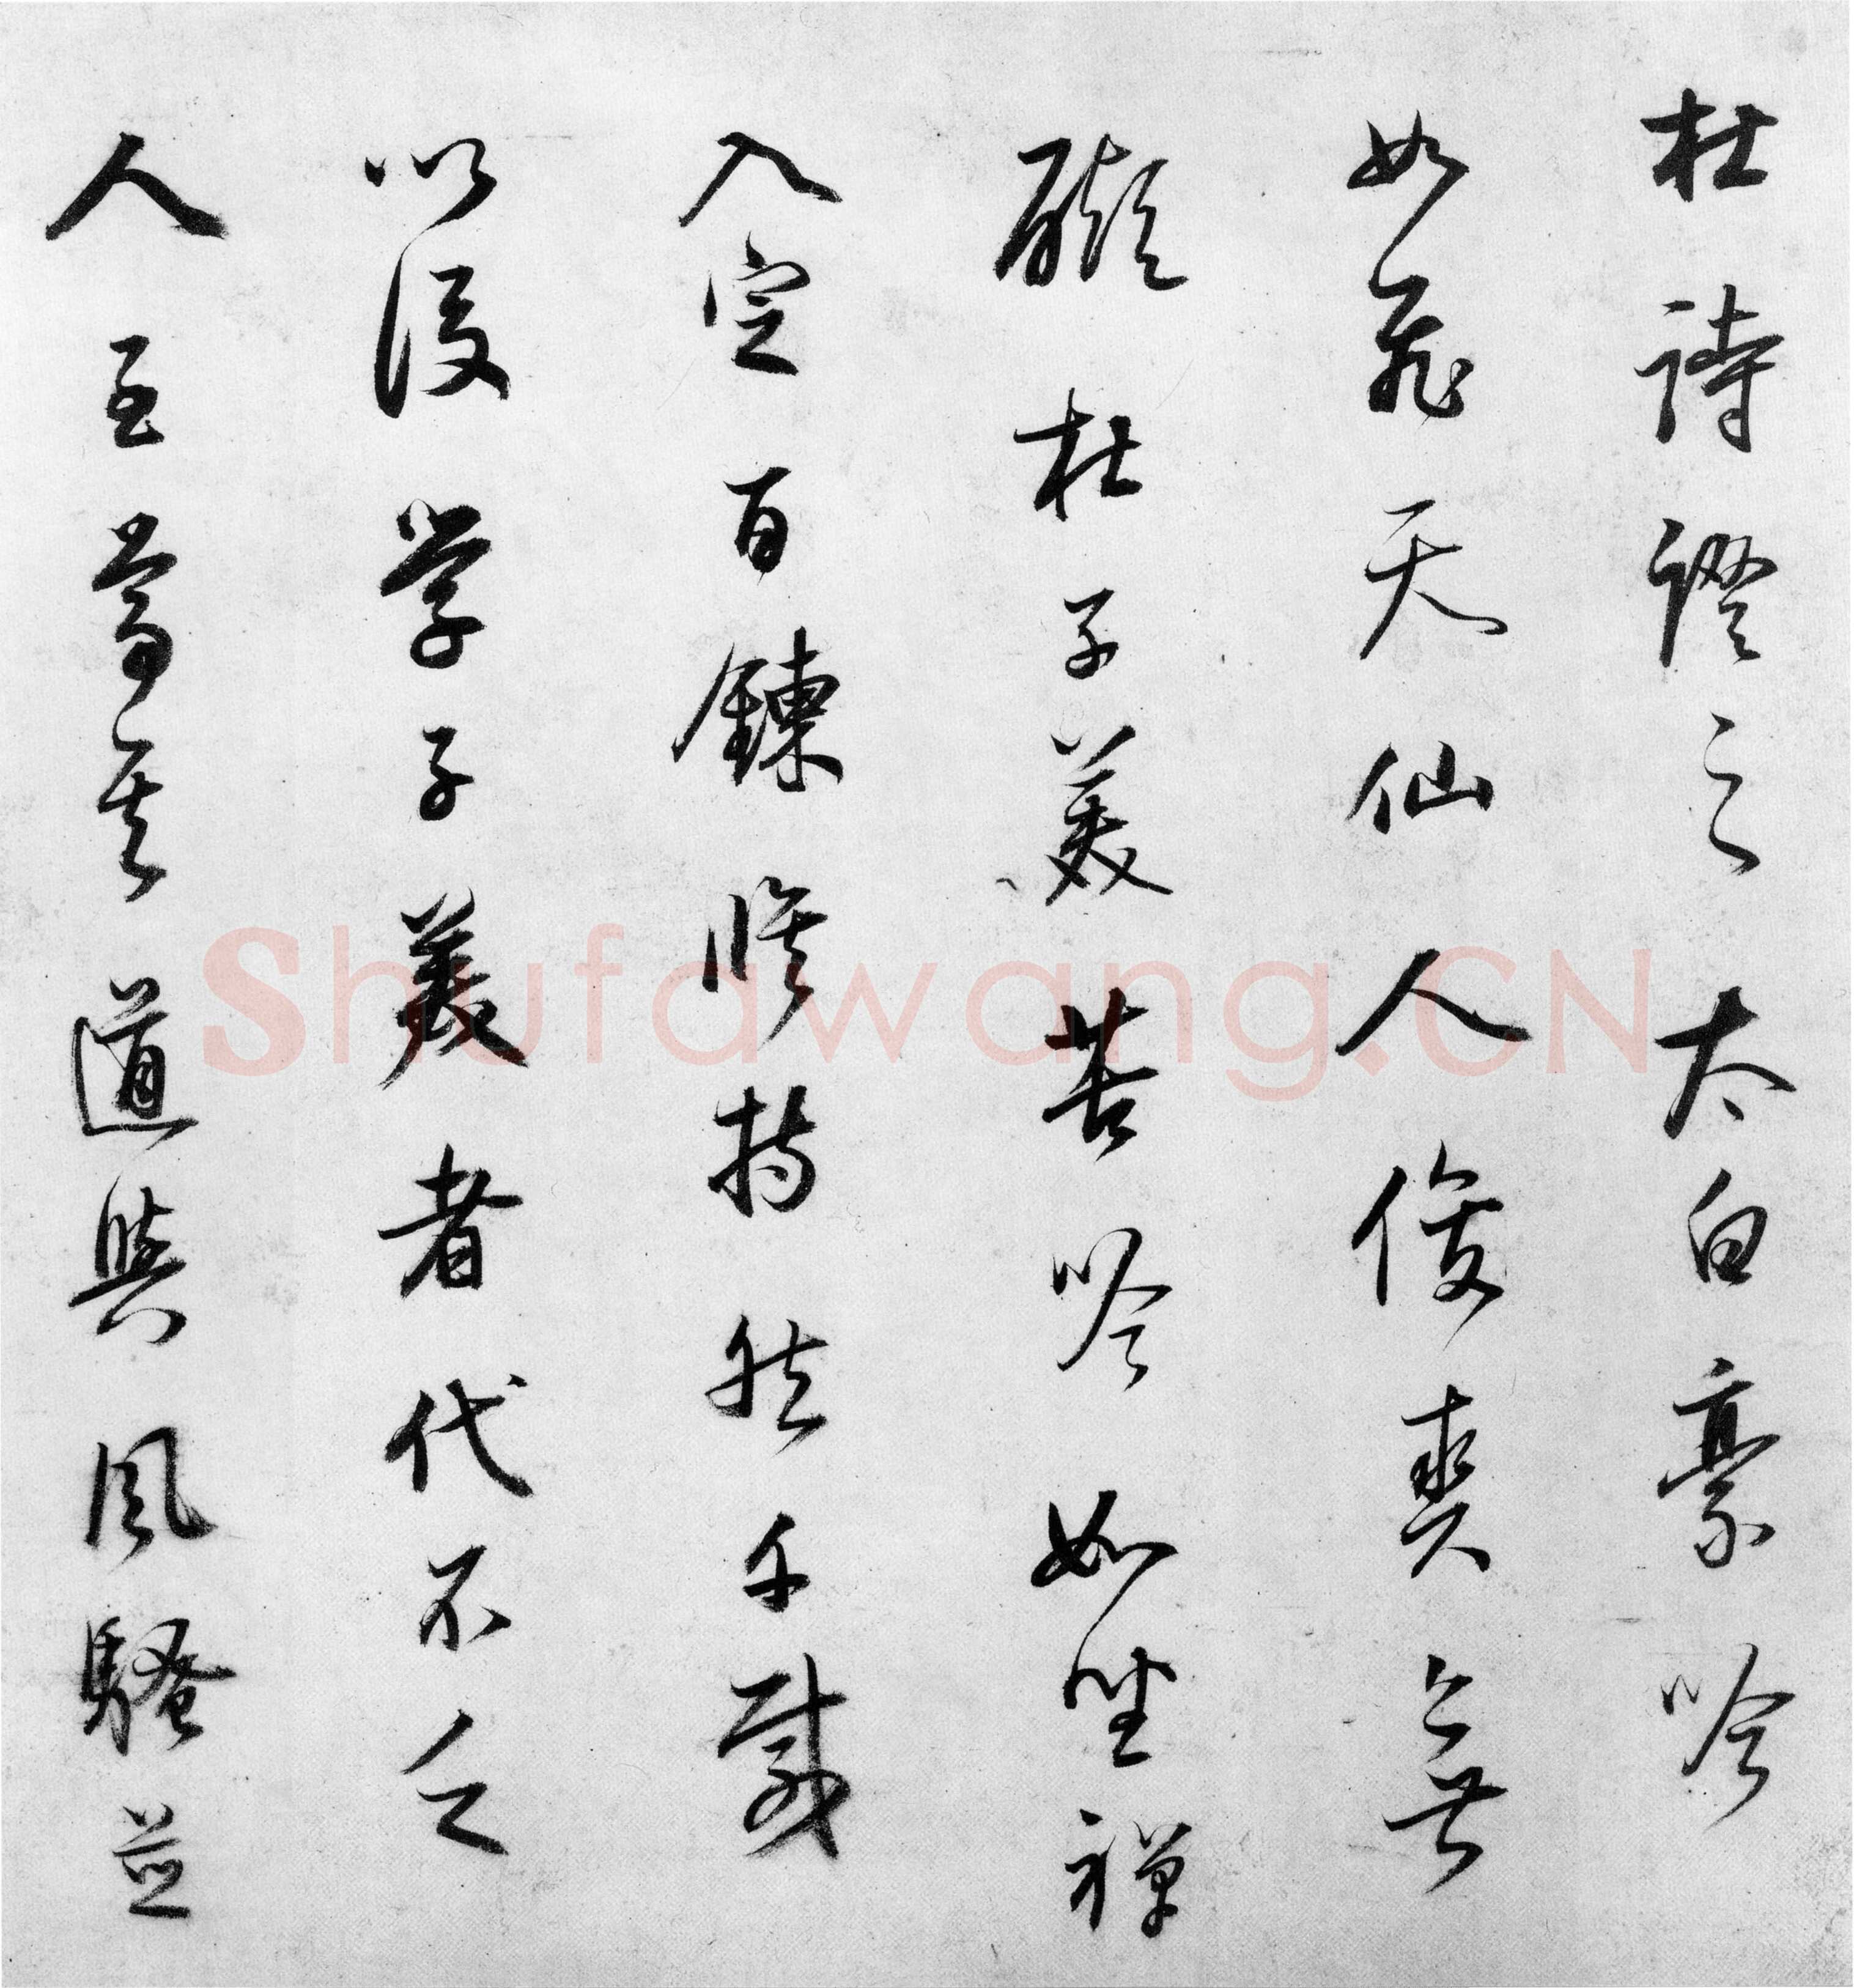 杜詩證之太白豪吟
如飛天仙人俊爽無
礙杜子美苦吟如坐禪
入定百鍊修持然千載
以後學子美者代不乏
人至尊其道與風騷並
Shufawang.CN